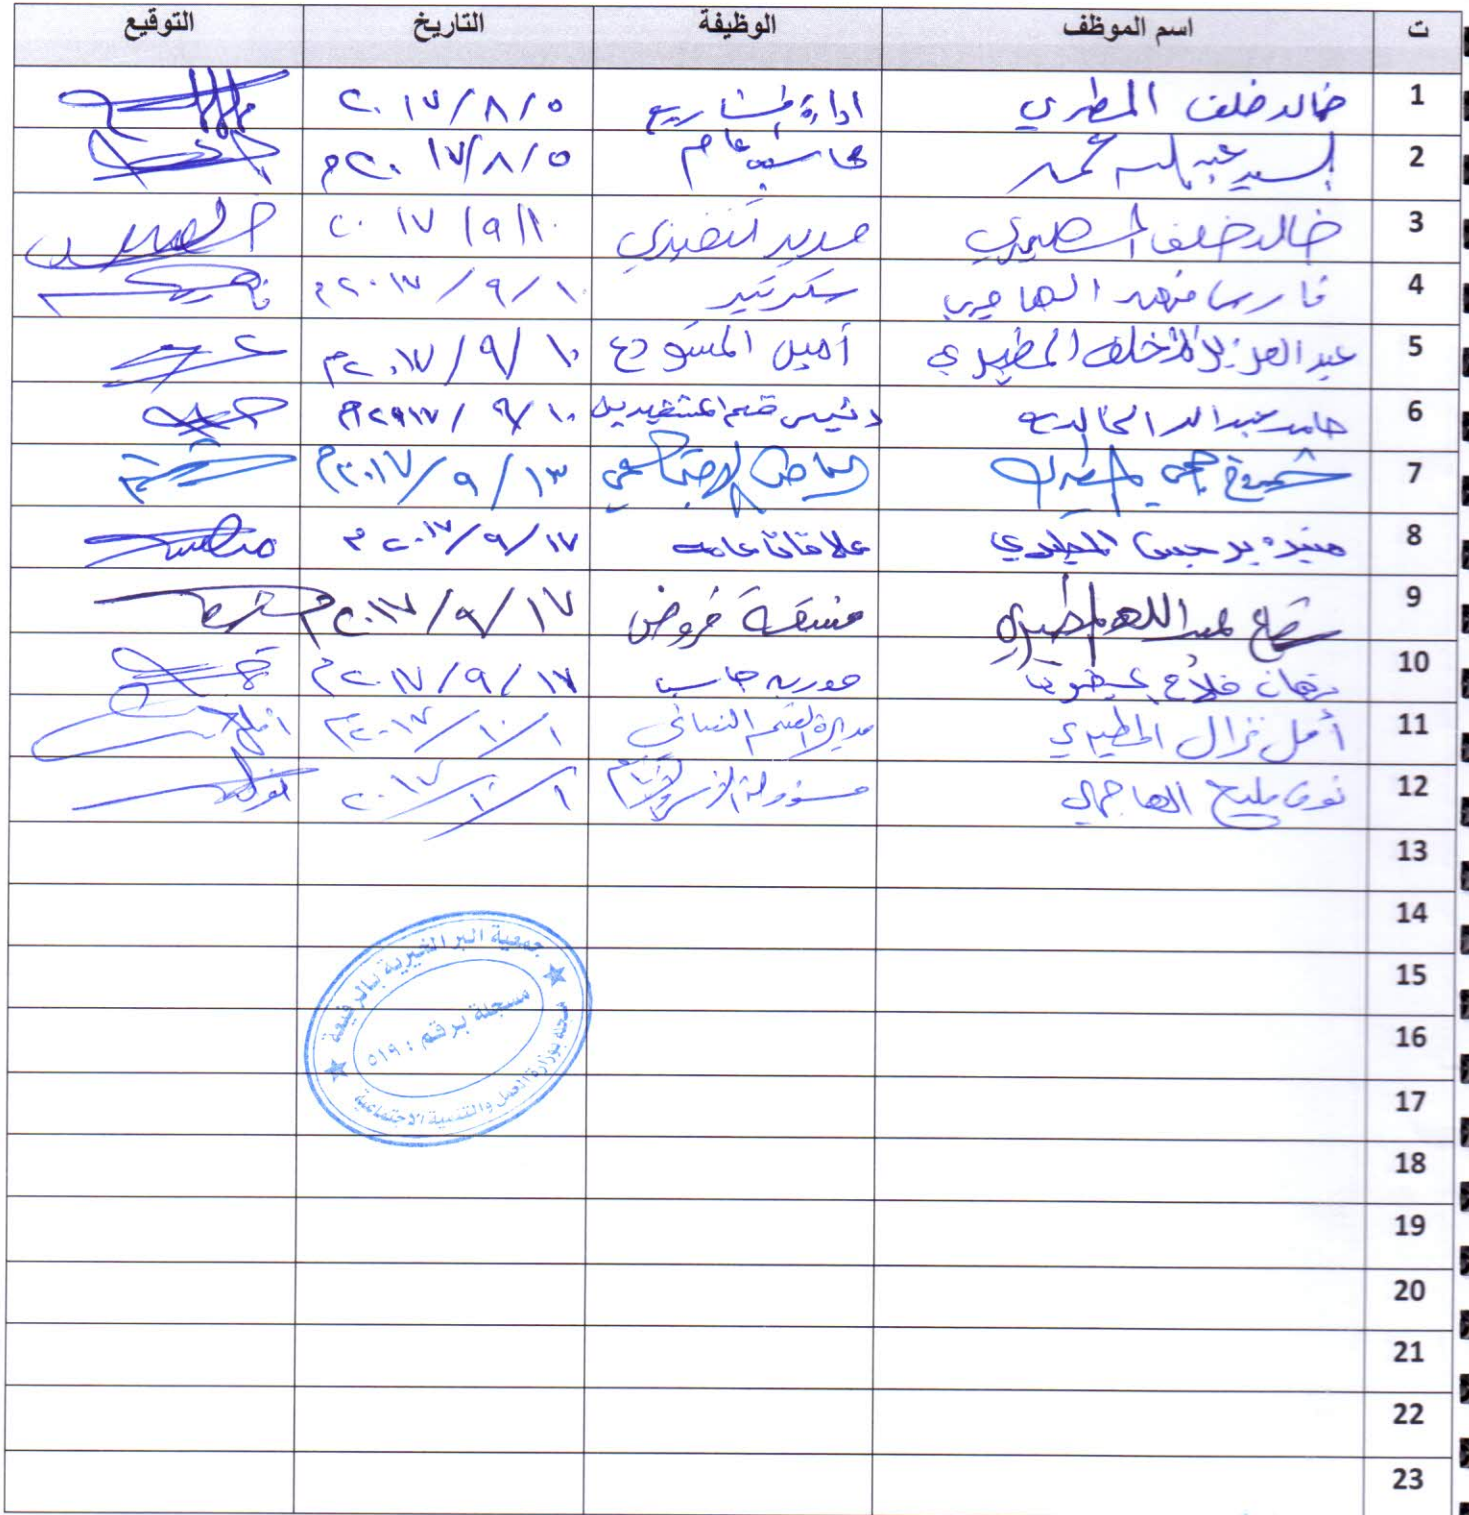 ت اسم الموظف الوظيفة التاريخ التوقيع
1 خالد خلف المطيري ادارة المشاريع ٢٠١٧/٨/٥
2 السيد عبد محمد محاسب عام ٢٠١٧/٨/٥م
3 خالد خلف المطيري مدير تنفيذي ٢٠١٧/٩/١٠
4 فارس فهد الهاجري سكرتير ٢٠١٧/٩/١٠م
5 عبد العزيز خلف المطيري أمين المستودع ٢٠١٧/٩/١٠م
6 حامد عبدالله الخالدي رئيس قسم المستفيدين ٢٠١٧/٩/١٠م
7 المطيري الباحث الاجتماعي ٢٠١٧/٩/١٣م
8 منيره برجس المطيري علاقات عامه ٢٠١٧/٩/١٧م
9 عبدالله المطيري منسقة قروض ٢٠١٧/٩/١٧م
10 فلاح مدربه حاسب ٢٠١٧/٩/١٧م
11 أمل نزال المطيري مديرة القسم النسائي ٢٠١٧/١٠/١م
12 مليح الهاجري مسؤولة ٢٠١٧/١٠/١
13
14
15
16
17
18
19
20
21
22
23
جمعية البر الخيرية بالرفيعة
مسجلة برقم : ٥١٩
مسجلة بوزارة العمل والتنمية الاجتماعية